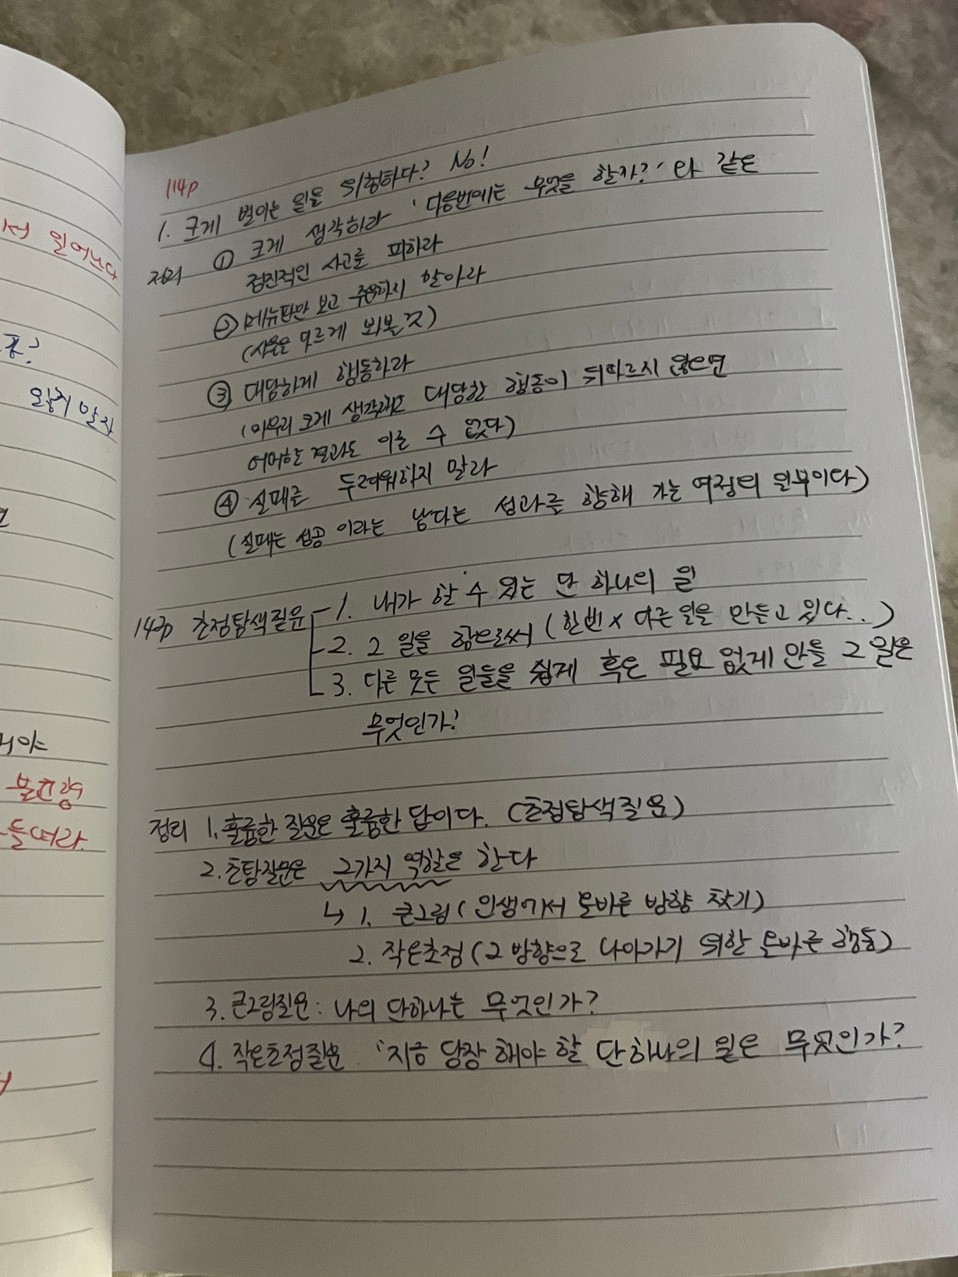 서 일어난다
왔지 말자
불균형
들떠라.
114p
1. 크게 벌이는 일은 위험하다? No!
정리 ① 크게 생각하라 '다음번에는 무엇을 할까?' 와 같은
점진적인 사고를 피하라
② 메뉴판만 보고 주문하지 말아라
(사용은 다르게 봐볼 것)
③ 대담하게 행동하라
(아무리 크게 생각해도 대담한 행동이 뒤따르지 않으면
어떠한 결과도 이룰 수 없다)
④ 실패를 두려워하지 말라
(실패는 성공이라는 남다른 성과를 향해 가는 여정의 일부이다)
142p 초점탐색질문 1. 내가 할 수 있는 단 하나의 일
2. 그 일을 함으로써 (한번 x 다른 일을 만들고 있다..)
3. 다른 모든 일들을 쉽게 혹은 필요 없게 만들 그 일은
무엇인가?
정리 1. 훌륭한 질문은 훌륭한 답이다. (초점탐색질문)
2. 초탐질문은 2가지 역할을 한다
↳ 1. 큰그림 (인생에서 올바른 방향 찾기)
2. 작은초점 (그 방향으로 나아가기 위한 올바른 행동)
3. 큰그림질문: 나의 단하나는 무엇인가?
4. 작은초점질문 '지금 당장 해야 할 단 하나의 일은 무엇인가?